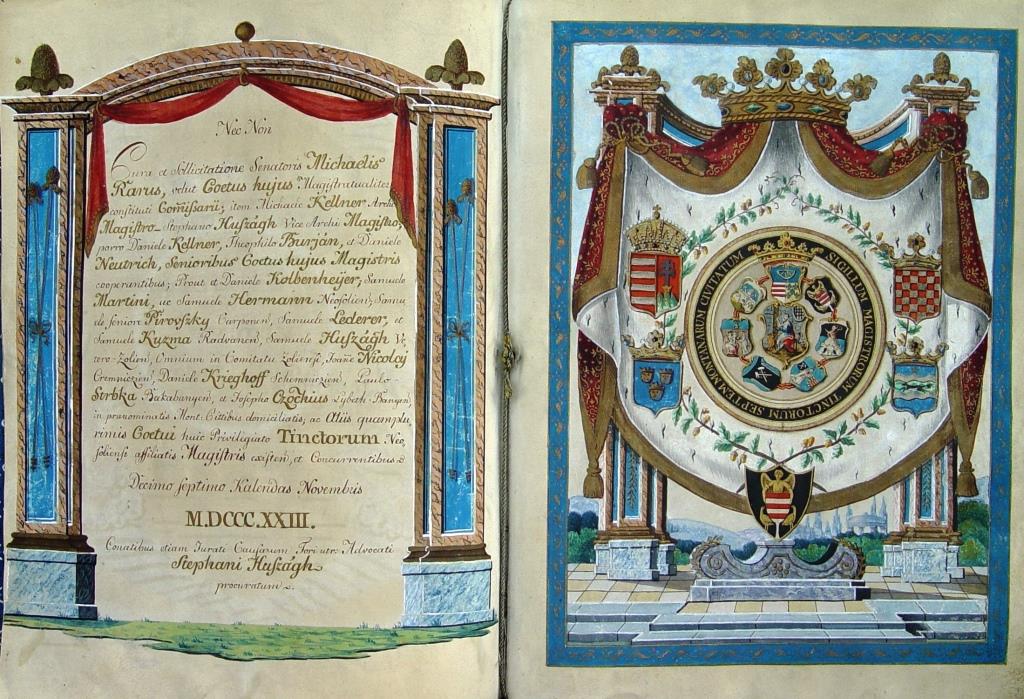 Nec Non
Cura et Sollicitatione Senatoris Michaelis
Rarus, velut Coetus hujus Magistratualiter
constituti Comissarii; item Michaele Kellner Archi
Magistro Stephano Huszágh Vice Archi Magistro,
porro Daniele Kellner, Theophilo Burján, et Daniele
Neutrich, Senioribus Coetus hujus Magistris
cooperantibus; Prout et Daniele Kolbenheÿer, Samuele
Martini, ac Samuele Hermann Neosolien; Samu
ele seniore Pirovszky Carponen, Samuele Lederer, et
Samuele Kuzma Radvanen, Samuele Huszágh Ve
tero-Zolien, Omnium in Comitatu Zoliensi, Joane Nicolaj
Cremniczien, Daniele Krieghoff Schemniczien, Paulo
Srbka Bakabanyen, et Josepho Czochius Lybeth-Banyen,
in praenominatis Mont. Cittibus domiciliatis; ac Aliis quamplu
rimis Coetui huic Privilegiato Tinctorum Neo
soliensi affiliatis Magistris existen, et Concurrentibus
Decimo septimo Kalendas Novembris
M.DCCC.XXIII.
Conatibus etiam Jurati Causarum Fori utr. Advocati
Stephani Huszágh
procuratum.
SIGILLUM MAGISTRORUM TINCTORUM SEPTEMMONTANARUM CIVITATUM